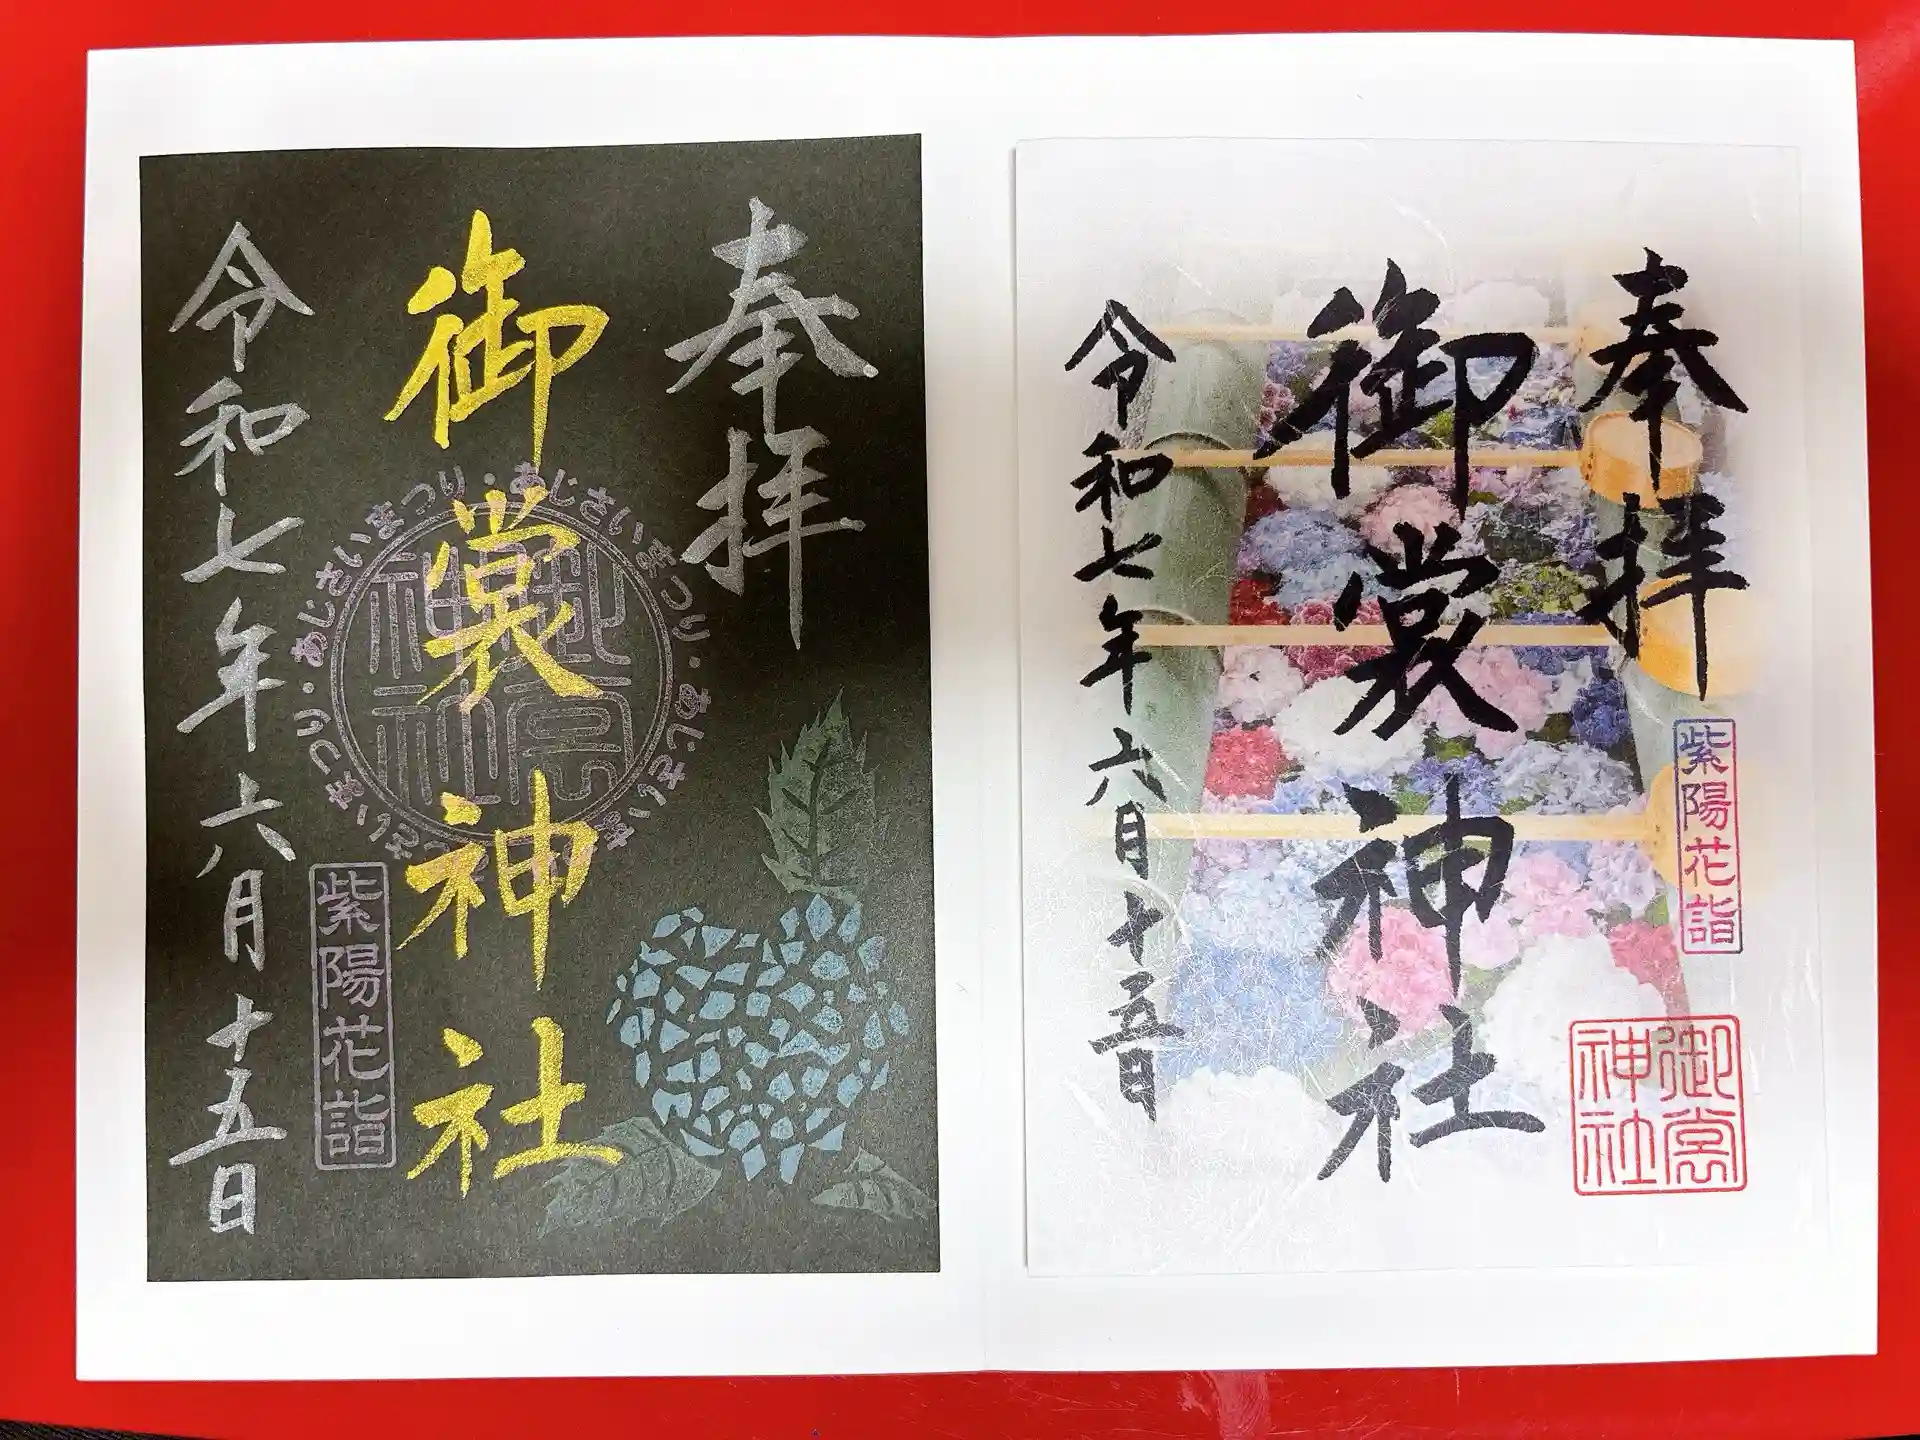 奉拝
御裳神社
紫陽花詣
御裳神社
令和七年六月十五日
奉拝
御裳神社
御裳神社
あじさいまつり・あじさいまつり・あじさいまつり・あじさいまつり・
紫陽花詣
令和七年六月十五日